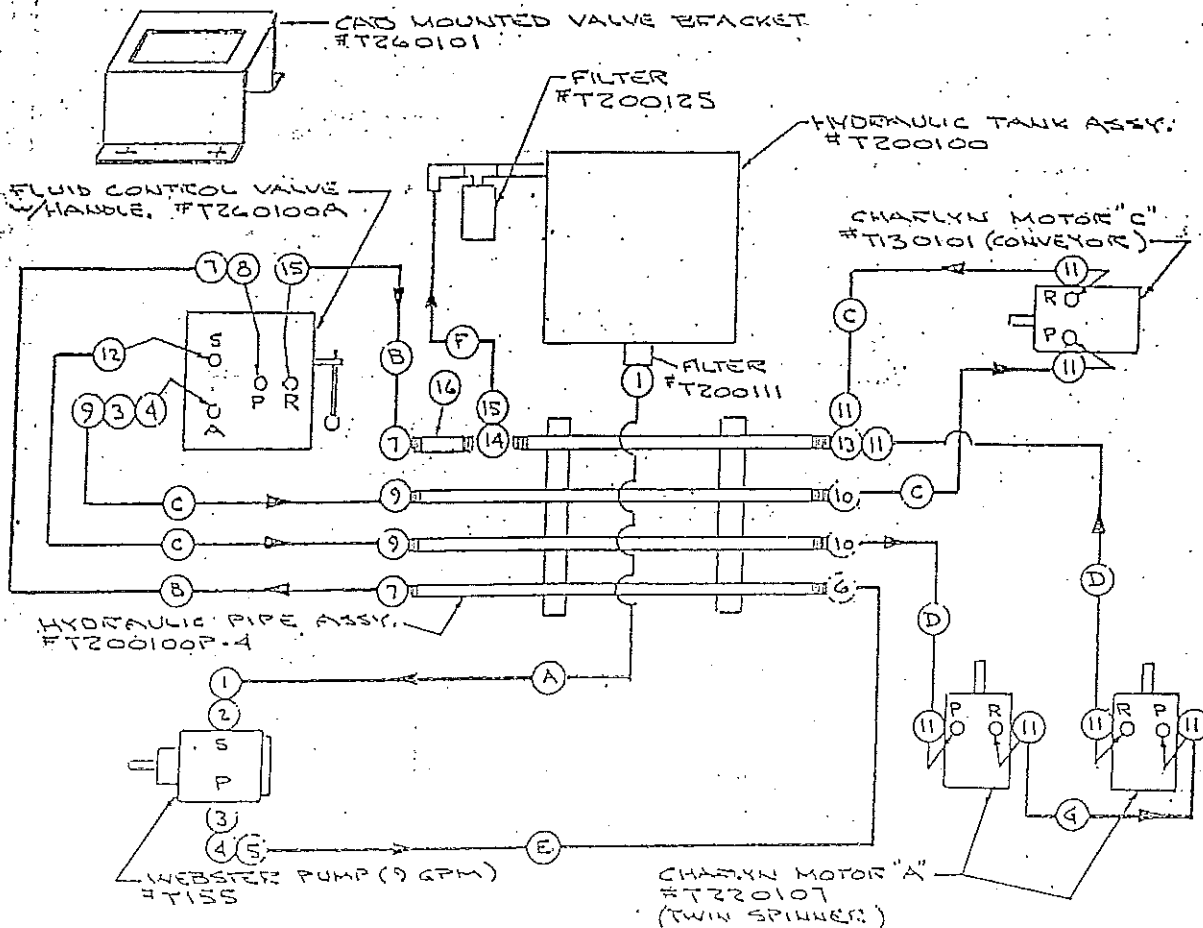 CAB MOUNTED VALVE BRACKET
#T260101
FILTER
#T200125
HYDRAULIC TANK ASSY.
#T200100
FLUID CONTROL VALVE
W/HANDLE. #T260100A
CHARLYN MOTOR "C"
#T130101 (CONVEYOR)
7 8 15
11
R
P
11
C
12
S
B
F
FILTER
#T200111
1
9 3 4
A
P R
16
15
11
7
14
13 11
C
9
10
C
C
9
10
B
7
6
D
D
HYDRAULIC PIPE ASSY.
#T200100P-4
1
A
2
S
P
3
4 5
E
11
P R
11
11
R P
11
G
WEBSTER PUMP (9 GPM)
#T155
CHARLYN MOTOR "A"
#T220107
(TWIN SPINNER)